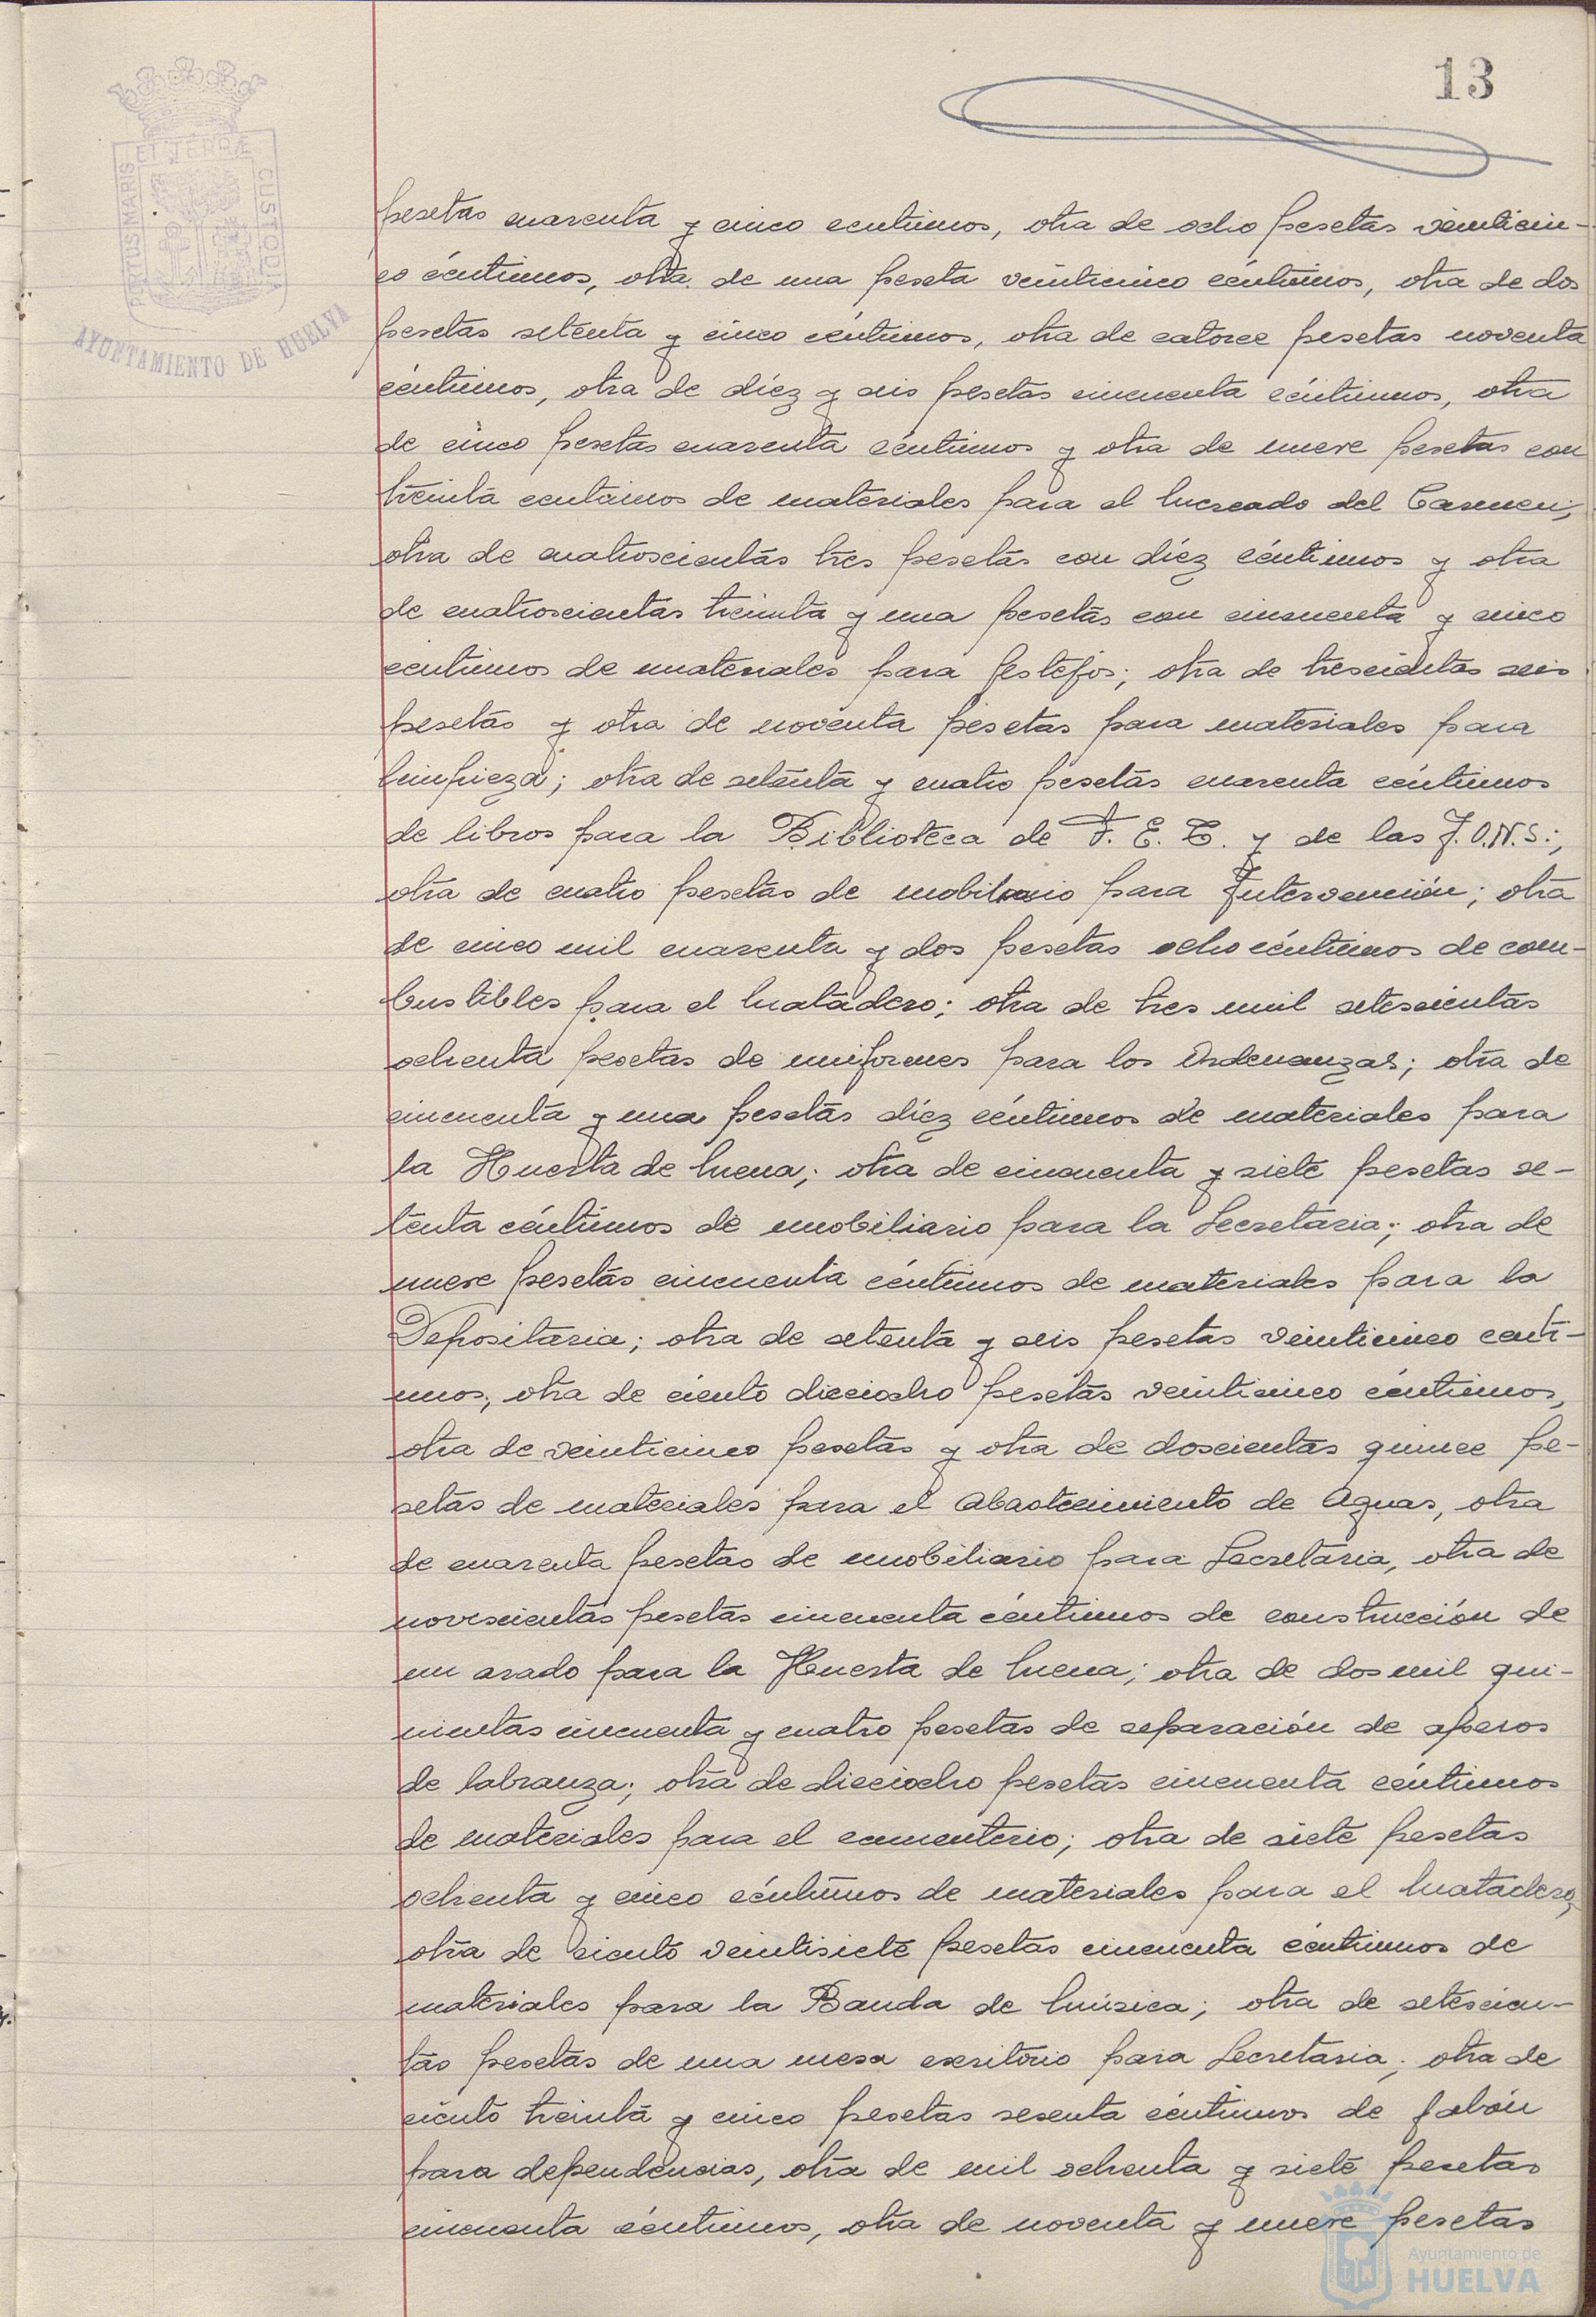 13
PORTUS MARIS ET TERRÆ CUSTODIA
AYUNTAMIENTO DE HUELVA
pesetas cuarenta y cinco centimos, otra de ocho pesetas veinticin-
co céntimos, otra de una peseta veinticinco céntimos, otra de dos
pesetas setenta y cinco céntimos, otra de catorce pesetas noventa
céntimos, otra de diez y seis pesetas cincuenta céntimos, otra
de cinco pesetas cuarenta céntimos y otra de nueve pesetas con
treinta centimos de materiales para el Mercado del Carmen;
otra de cuatroscientas tres pesetas con diez céntimos y otra
de cuatroscientas treinta y una pesetas con cincuenta y cinco
centimos de materiales para festejos; otra de trescientas seis
pesetas y otra de noventa pesetas para materiales para
limpieza; otra de setenta y cuatro pesetas cuarenta céntimos
de libros para la Biblioteca de F. E. T. y de las J.O.N.S.;
otra de cuatro pesetas de mobiliario para Intervención; otra
de cinco mil cuarenta y dos pesetas ocho céntimos de com-
bustibles para el Matadero; otra de tres mil setescientas
ochenta pesetas de uniformes para los Ordenanzas; otra de
cincuenta y una pesetas diez céntimos de materiales para
la Huerta de Mena; otra de cincuenta y siete pesetas se-
tenta céntimos de mobiliario para la Secretaria; otra de
nueve pesetas cincuenta céntimos de materiales para la
Depositaria; otra de setenta y seis pesetas veinticinco centi-
mos; otra de ciento dieciocho pesetas veinticinco céntimos,
otra de veinticinco pesetas y otra de doscientas quince pe-
setas de materiales para el Abastecimiento de Aguas, otra
de cuarenta pesetas de mobiliario para Secretaria, otra de
novescientas pesetas cincuenta céntimos de construcción de
un arado para la Huerta de Mena; otra de dos mil qui-
nientas cincuenta y cuatro pesetas de reparación de aperos
de labranza; otra de dieciocho pesetas cincuenta céntimos
de materiales para el cementerio; otra de siete pesetas
ochenta y cinco céntimos de materiales para el Matadero;
otra de ciento veintisiete pesetas cincuenta céntimos de
materiales para la Banda de Música; otra de setescien-
tas pesetas de una mesa escritorio para Secretaria; otra de
ciento treinta y cinco pesetas sesenta céntimos de jabón
para dependencias, otra de mil ochenta y siete pesetas
cincuenta céntimos, otra de noventa y nueve pesetas
Ayuntamiento de
HUELVA